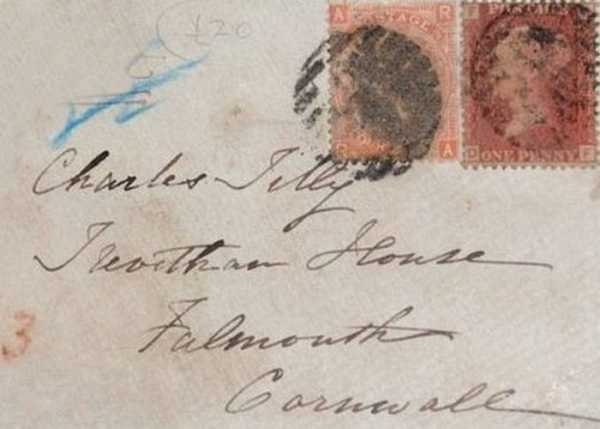 £20
A R
POSTAGE
R A
ONE PENNY
D F
Charles Tilly
Trevithan House
Falmouth
Cornwall
3